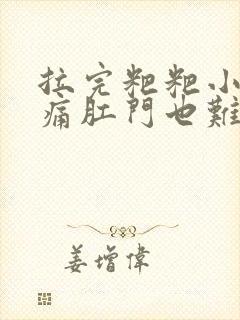 拉完粑粑小
痛肛門也難
姜增偉